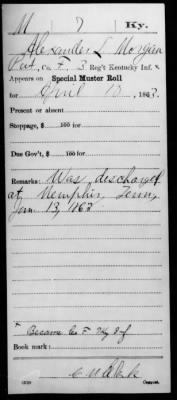 M 7 Ky.
Alexander L Morgan
Pvt, Co. F, 3 Reg't Kentucky Inf. ×
Appears on Special Muster Roll
for April 10, 1863.
Present or absent
Stoppage, $ 100 for
Due Gov't, $ 100 for
Remarks: Was discharged
at Memphis, Tenn,
Jan. 13, 1863
× Became Co F Inf
Book mark:
Copyist.